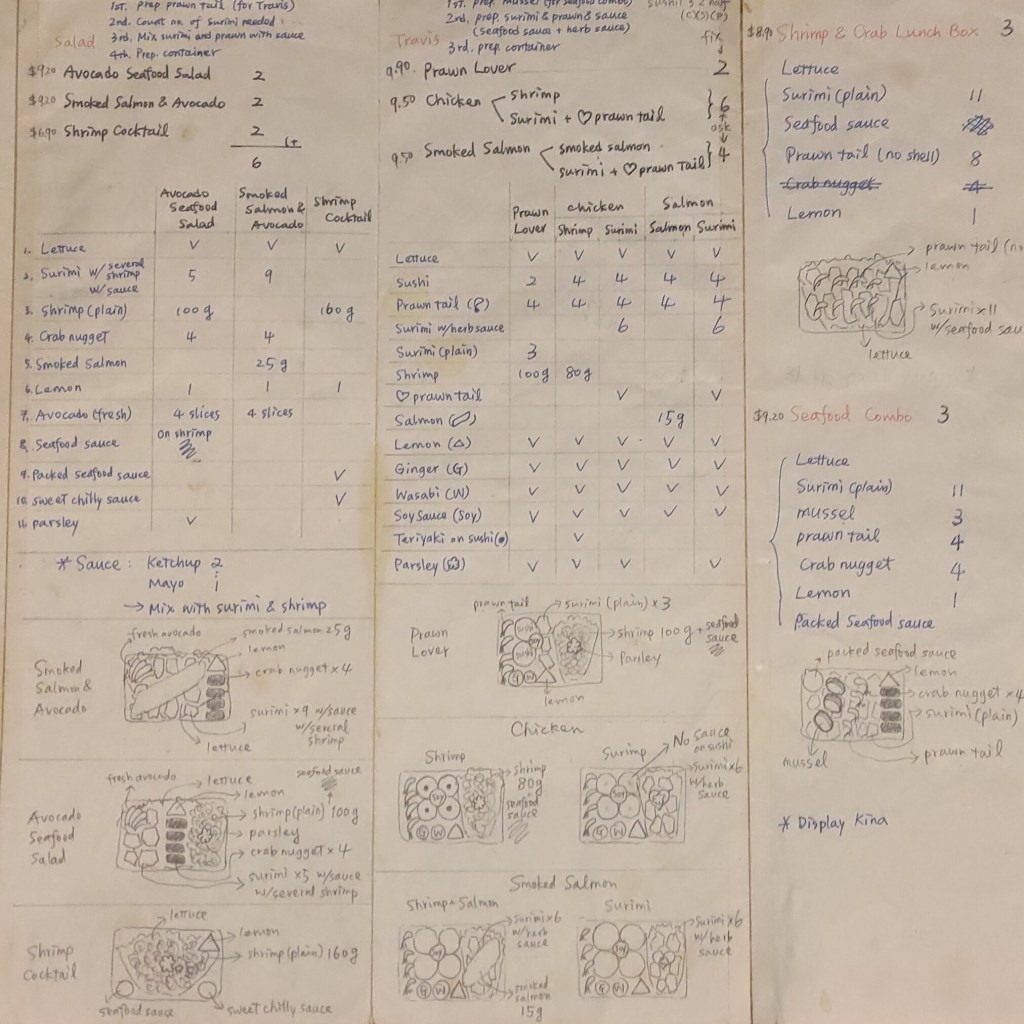 1st. prep prawn tail (for Travis)
2nd. Count no. of surimi needed
3rd. Mix surimi and prawn with sauce
4th. Prep. container
Salad
$9.20 Avocado Seafood Salad 2
$9.20 Smoked Salmon & Avocado 2
$6.90 Shrimp Cocktail 2
6
Avocado Seafood Salad
Smoked Salmon & Avocado
Shrimp Cocktail
1. Lettuce V V V
2. Surimi w/ several shrimp w/sauce 5 9
3. Shrimp (plain) 100g 160g
4. Crab nugget 4 4
5. Smoked Salmon 25g
6. Lemon 1 1 1
7. Avocado (fresh) 4 slices 4 slices
8. Seafood sauce on shrimp
9. Packed seafood sauce V
10. sweet chilly sauce V
11. parsley V
* Sauce : Ketchup 2
Mayo 1
→ Mix with surimi & shrimp
Smoked Salmon & Avocado
fresh avocado
smoked salmon 25g
lemon
crab nugget x 4
surimi x9 w/sauce
w/several shrimp
lettuce
Avocado Seafood Salad
fresh avocado
lettuce
seafood sauce
lemon
shrimp (plain) 100g
parsley
crab nugget x 4
surimi x5 w/sauce
w/several shrimp
Shrimp Cocktail
lettuce
lemon
shrimp (plain) 160g
seafood sauce
sweet chilly sauce
1st. prep. mussel (for seafood combo)
2nd. prep. surimi & prawn & sauce
(seafood sauce + herb sauce)
3rd. prep. container
Travis
fix
9.90. Prawn Lover 2
9.50 Chicken
Shrimp
Surimi + ♡ prawn tail
6
ask
9.50 Smoked Salmon
smoked salmon
surimi + ♡ prawn Tail
4
Prawn Lover
chicken
Salmon
Shrimp Surimi Salmon Surimi
Lettuce V V V V V
Sushi 2 4 4 4 4
Prawn tail 4 4 4 4 4
Surimi w/herb sauce 6 6
Surimi (plain) 3
Shrimp 100g 80g
♡ prawn tail V V
Salmon 15g
Lemon (△) V V V V V
Ginger (G) V V V V V
Wasabi (W) V V V V V
Soy Sauce (Soy) V V V V V
Teriyaki on sushi V
Parsley V V V V
Prawn Lover
prawn tail
surimi (plain) x 3
shrimp 100g + seafood sauce
Parsley
lemon
Sushi
Sushi
G W
Chicken
Shrimp
shrimp 80g
seafood sauce
Soy
G W
Surimp
No sauce on sushi
surimi x6
w/herb sauce
Soy
G W
Smoked Salmon
Shrimp + Salmon
surimi x6
w/herb sauce
smoked salmon 15g
Soy
G W
Surimi
surimi x6
w/herb sauce
Soy
G W
$8.90 Shrimp & Crab Lunch Box 3
Lettuce
Surimi (plain) 11
Seafood sauce
Prawn tail (no shell) 8
Crab nugget 4
Lemon 1
prawn tail (no
lemon
Surimi x 11
w/seafood sau
lettuce
$9.20 Seafood Combo 3
Lettuce
Surimi (plain) 11
mussel 3
prawn tail 4
Crab nugget 4
Lemon 1
Packed Seafood sauce
packed seafood sauce
lemon
crab nugget x 4
surimi (plain)
mussel
prawn tail
* Display Kina